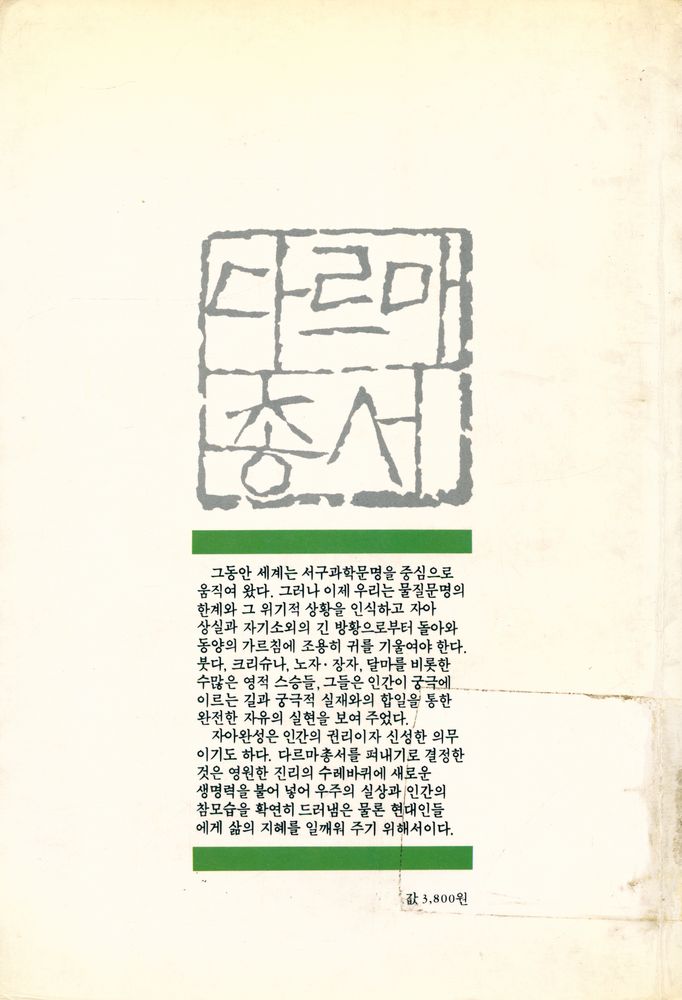 다르마
총서
그동안 세계는 서구과학문명을 중심으로
움직여 왔다. 그러나 이제 우리는 물질문명의
한계와 그 위기적 상황을 인식하고 자아
상실과 자기소외의 긴 방황으로부터 돌아와
동양의 가르침에 조용히 귀를 기울여야 한다.
붓다, 크리슈나, 노자·장자, 달마를 비롯한
수많은 영적 스승들, 그들은 인간이 궁극에
이르는 길과 궁극적 실재와의 합일을 통한
완전한 자유의 실현을 보여 주었다.
자아완성은 인간의 권리이자 신성한 의무
이기도 하다. 다르마총서를 펴내기로 결정한
것은 영원한 진리의 수레바퀴에 새로운
생명력을 불어 넣어 우주의 실상과 인간의
참모습을 확연히 드러냄은 물론 현대인들
에게 삶의 지혜를 일깨워 주기 위해서이다.
값 3,800원